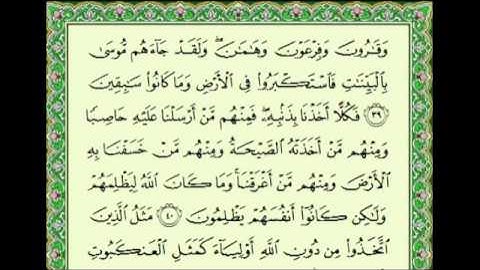 وَقَـٰرُونَ وَفِرْعَوْنَ وَهَـٰمَـٰنَ ۖ وَلَقَدْ جَآءَهُم مُّوسَىٰ
بِٱلْبَيِّنَـٰتِ فَٱسْتَكْبَرُوا۟ فِى ٱلْأَرْضِ وَمَا كَانُوا۟ سَـٰبِقِينَ
٣٩ فَكُلًّا أَخَذْنَا بِذَنۢبِهِۦ ۖ فَمِنْهُم مَّنْ أَرْسَلْنَا عَلَيْهِ حَاصِبًا
وَمِنْهُم مَّنْ أَخَذَتْهُ ٱلصَّيْحَةُ وَمِنْهُم مَّنْ خَسَفْنَا بِهِ
ٱلْأَرْضَ وَمِنْهُم مَّنْ أَغْرَقْنَا ۚ وَمَا كَانَ ٱللَّهُ لِيَظْلِمَهُمْ
وَلَـٰكِن كَانُوٓا۟ أَنفُسَهُمْ يَظْلِمُونَ ٤٠ مَثَلُ ٱلَّذِينَ
ٱتَّخَذُوا۟ مِن دُونِ ٱللَّهِ أَوْلِيَآءَ كَمَثَلِ ٱلْعَنكَبُوتِ